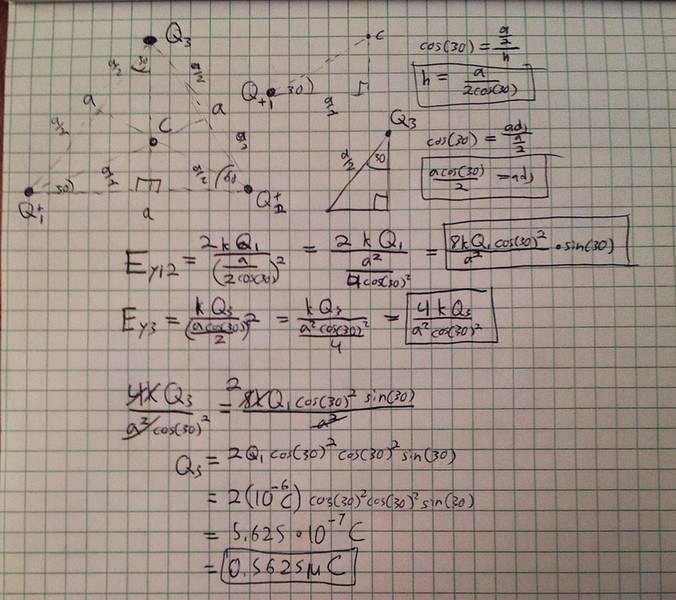 Q3
a/2 30 a/2
a a
a/2 C a/2
Q1+ 30 a/2 a/2 60 Q2+
a
C
Q+1 30) a/2
cos(30) = (a/2)/h
h = a/(2cos(30))
Q3
a/2 30
cos(30) = adj/(a/2)
acos(30)/2 = adj
Ey12 = 2kQ1/(a/(2cos(30)))^2 = 2kQ1/(a^2/(4cos(30)^2)) = 8kQ1cos(30)^2/a^2 · sin(30)
Ey3 = kQ3/(acos(30)/2)^2 = kQ3/(a^2cos(30)^2/4) = 4kQ3/(a^2cos(30)^2)
4kQ3/(a^2cos(30)^2) = 2 8kQ1cos(30)^2 sin(30)/a^2
Q3 = 2Q1cos(30)^2cos(30)^2sin(30)
= 2(10^-6C) cos(30)^2cos(30)^2sin(30)
= 5.625 · 10^-7 C
= 0.5625μC